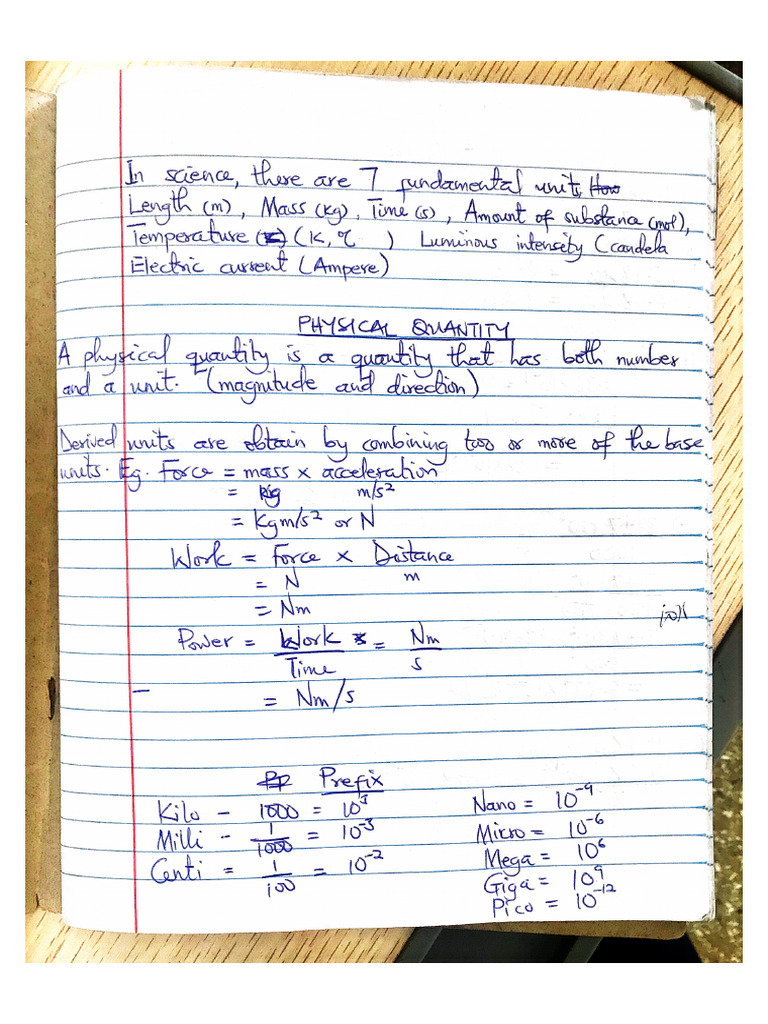 In science, there are 7 fundamental units,
Length (m), Mass (kg), Time (s), Amount of substance (mol),
Temperature (K, °C ) Luminous intensity (candela
Electric current (Ampere)
PHYSICAL QUANTITY
A physical quantity is a quantity that has both number
and a unit. (magnitude and direction)
Derived units are obtain by combining two or more of the base
units. Eg. Force = mass x acceleration
= kg m/s²
= Kgm/s² or N
Work = Force x Distance
= N m
= Nm
Power = Work / Time = Nm / s
= Nm/s
Prefix
Kilo - 1000 = 10³
Milli - 1/1000 = 10⁻³
Centi = 1/100 = 10⁻²
Nano = 10⁻⁹
Micro = 10⁻⁶
Mega = 10⁶
Giga = 10⁹
Pico = 10⁻¹²